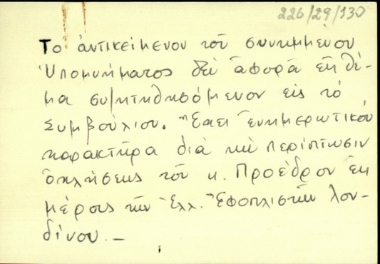 226/29/130
Το ἀντικείμενον τοῦ συνημμένου
Ὑπομνήματος δὲν ἀφορᾶ εἰς θέ-
μα συζητηθησόμενον εἰς τὸ
Συμβούλιον. Ἔχει ἐνημερωτικὸ
χαρακτῆρα διὰ τὴν περίπτωσιν
ὀχλήσεως τοῦ κ. Προέδρου ἐκ
μέρους τῶν Ἑλλ. Ἐφοπλιστῶν Λον-
δίνου. —